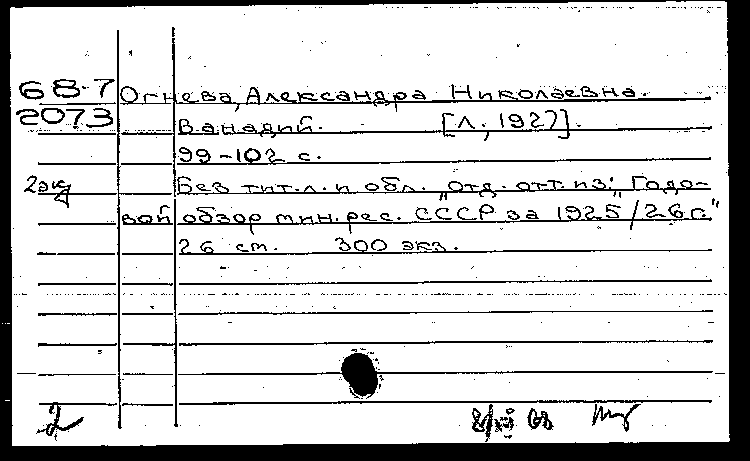 68-7 Огнева, Александра Николаевна.
2073
Ванадий. [Л., 1927].
99-102 с.
2 экз Без тит. л. и обл. "Отд. отт. из: "Годо-
вой обзор мин. рес. СССР за 1925/26 г."
26 см. 300 экз.
2 8/XII 68